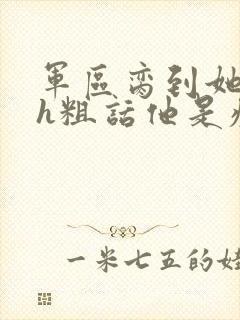 軍區高到她
h粗話他是
一米七五的娃